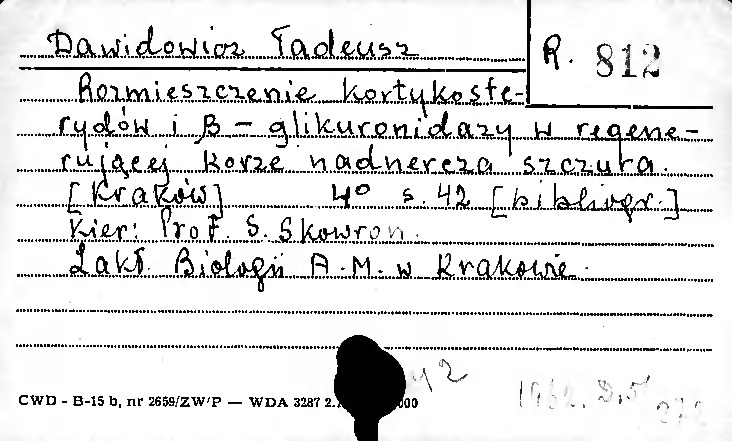 Dawidowicz Tadeusz
R. 812
Rozmieszczenie kortykoste-
rydów i β - glikuronidazy w regene-
rującej korze nadnercza szczura.
[Kraków] 4° s. 42 [bibliogr.]
Kier: Prof. S. Skowron.
Zakł. Biologii A.M. w Krakowie.
42
CWD - B-15 b, nr 2659/ZW/P — WDA 3287 2.
000